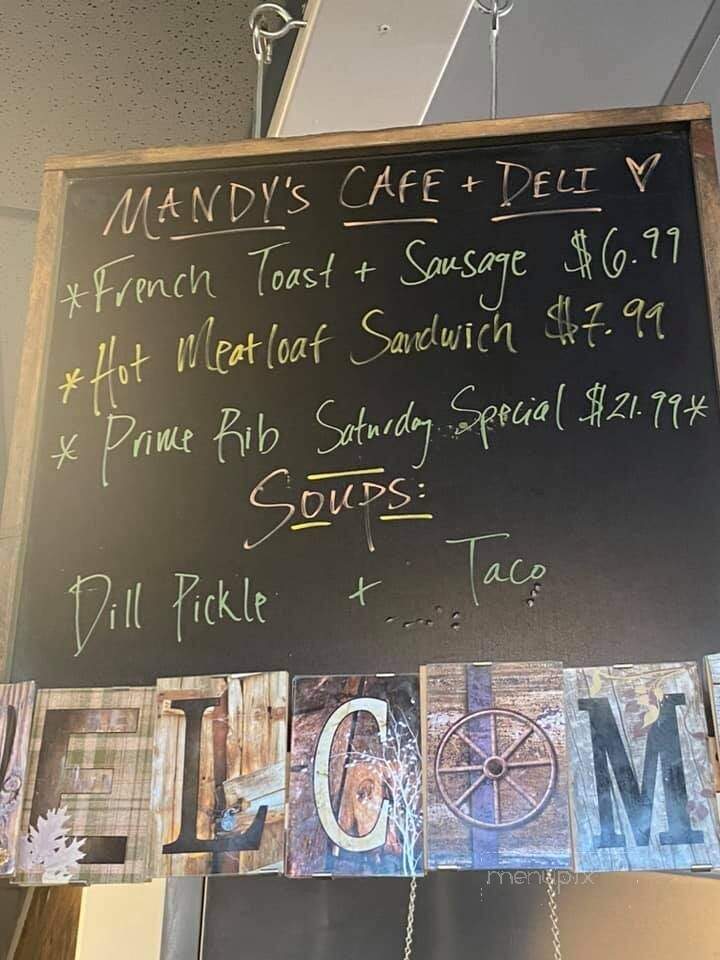 MANDY'S CAFE + DELI ♡
*French Toast + Sausage $6.99
*Hot Meatloaf Sandwich $7.99
* Prime Rib Saturday Special $21.99*
SOUPS:
Dill Pickle + Taco
ELCOM
menupix